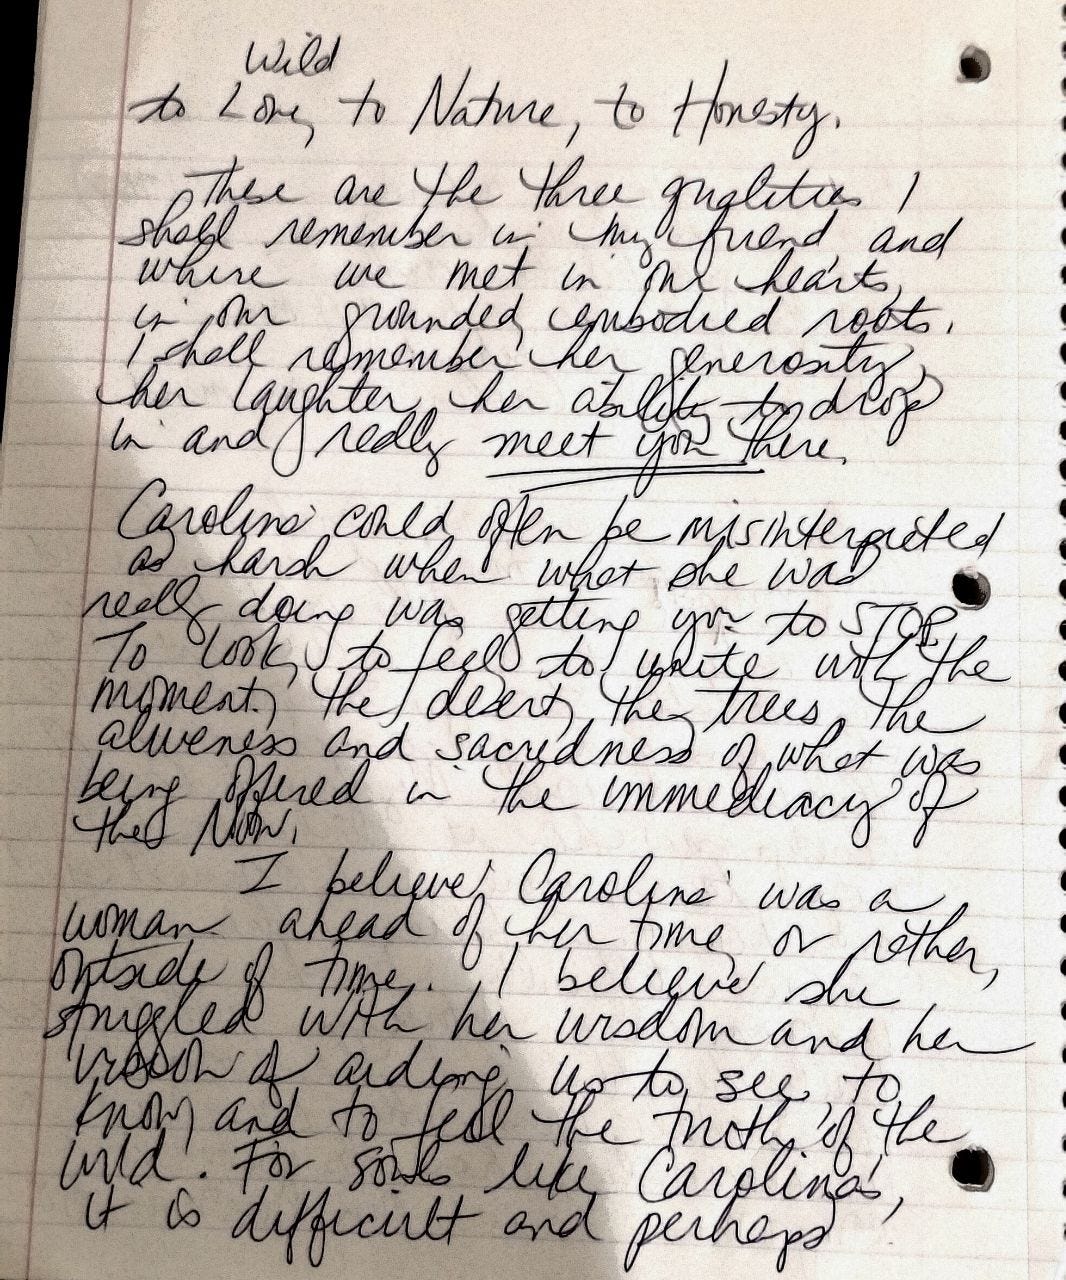 Wild
to Love, to Nature, to Honesty.
These are the three qualities I
shall remember in my friend, and
where we met in our hearts,
in our grounded, embodied roots.
I shall remember her generosity,
her laughter, her ability to drop
in and really meet you there.
Carolina could often be misinterpreted
as harsh when what she was
really doing was getting you to STOP.
To look, to feel, to unite with the
moment, the desert, the trees, the
aliveness and sacredness of what was
being offered in the immediacy of
the Now.
I believe Carolina was a
woman ahead of her time, or rather,
outside of time. I believe she
struggled with her wisdom and her
vision of aiding us to see, to
know and to feel the truth of the
wild. For souls like Carolina's,
it is difficult and perhaps